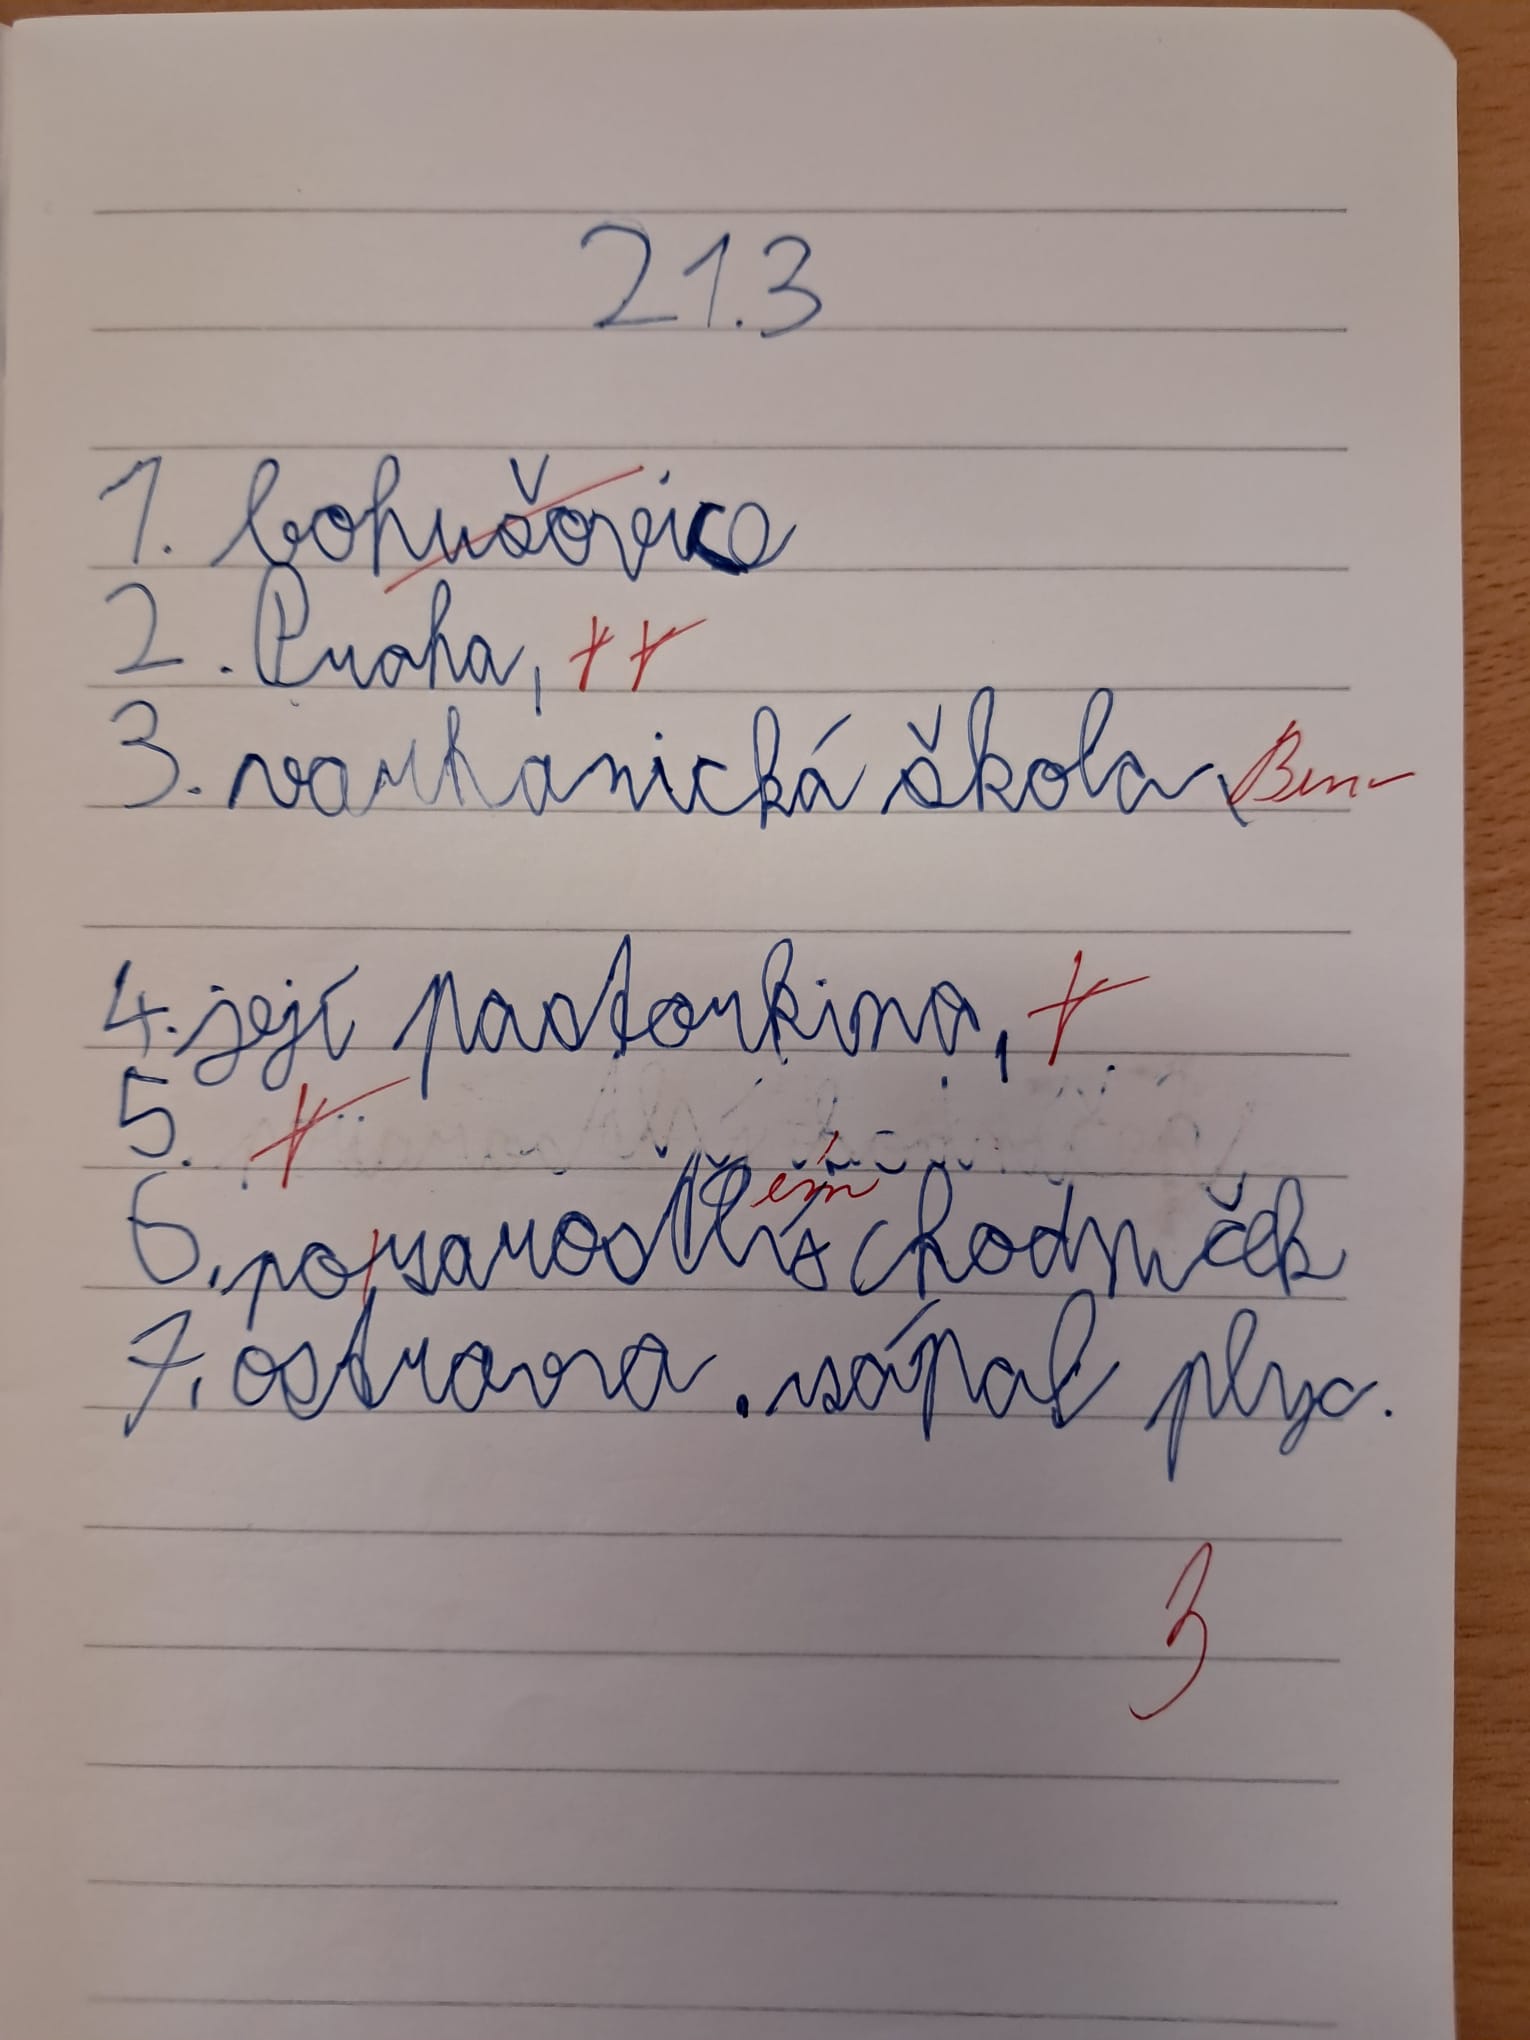 21.3
1. bohušovice
2. Praha, ++
3. varhanická škola, Brno
4. její pastorkina, +
5. +
6. po zarostlém chodníček
7. ostrava. zápal plyc.
3